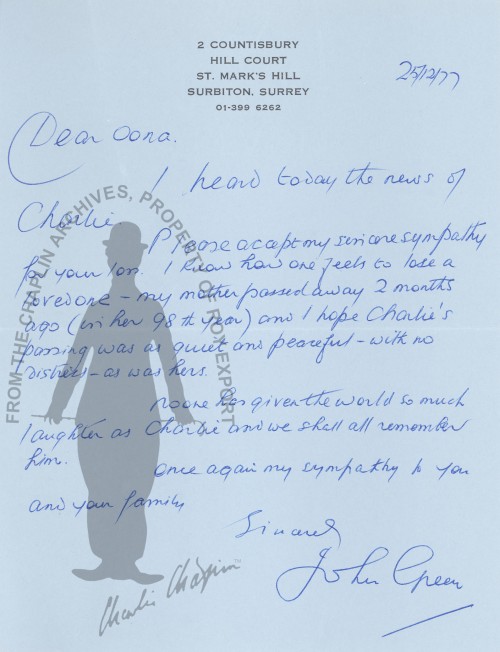 2 COUNTISBURY
HILL COURT
ST. MARK'S HILL
SURBITON, SURREY
01-399 6262
25/12/77
Dear Oona.
I heard today the news of
Charlie. Please accept my sincere sympathy
for your loss. I know how one feels to lose a
loved one - my mother passed away 2 months
ago (in her 98th year) and I hope Charlie's
passing was as quiet and peaceful - with no
distress - as was hers.
No one has given the world so much
laughter as Charlie and we shall all remember
him.
Once again my sympathy to you
and your family
Sincerely
John Green
FROM THE CHAPLIN ARCHIVES, PROPERTY OF ROY EXPORT
Charlie Chaplin™